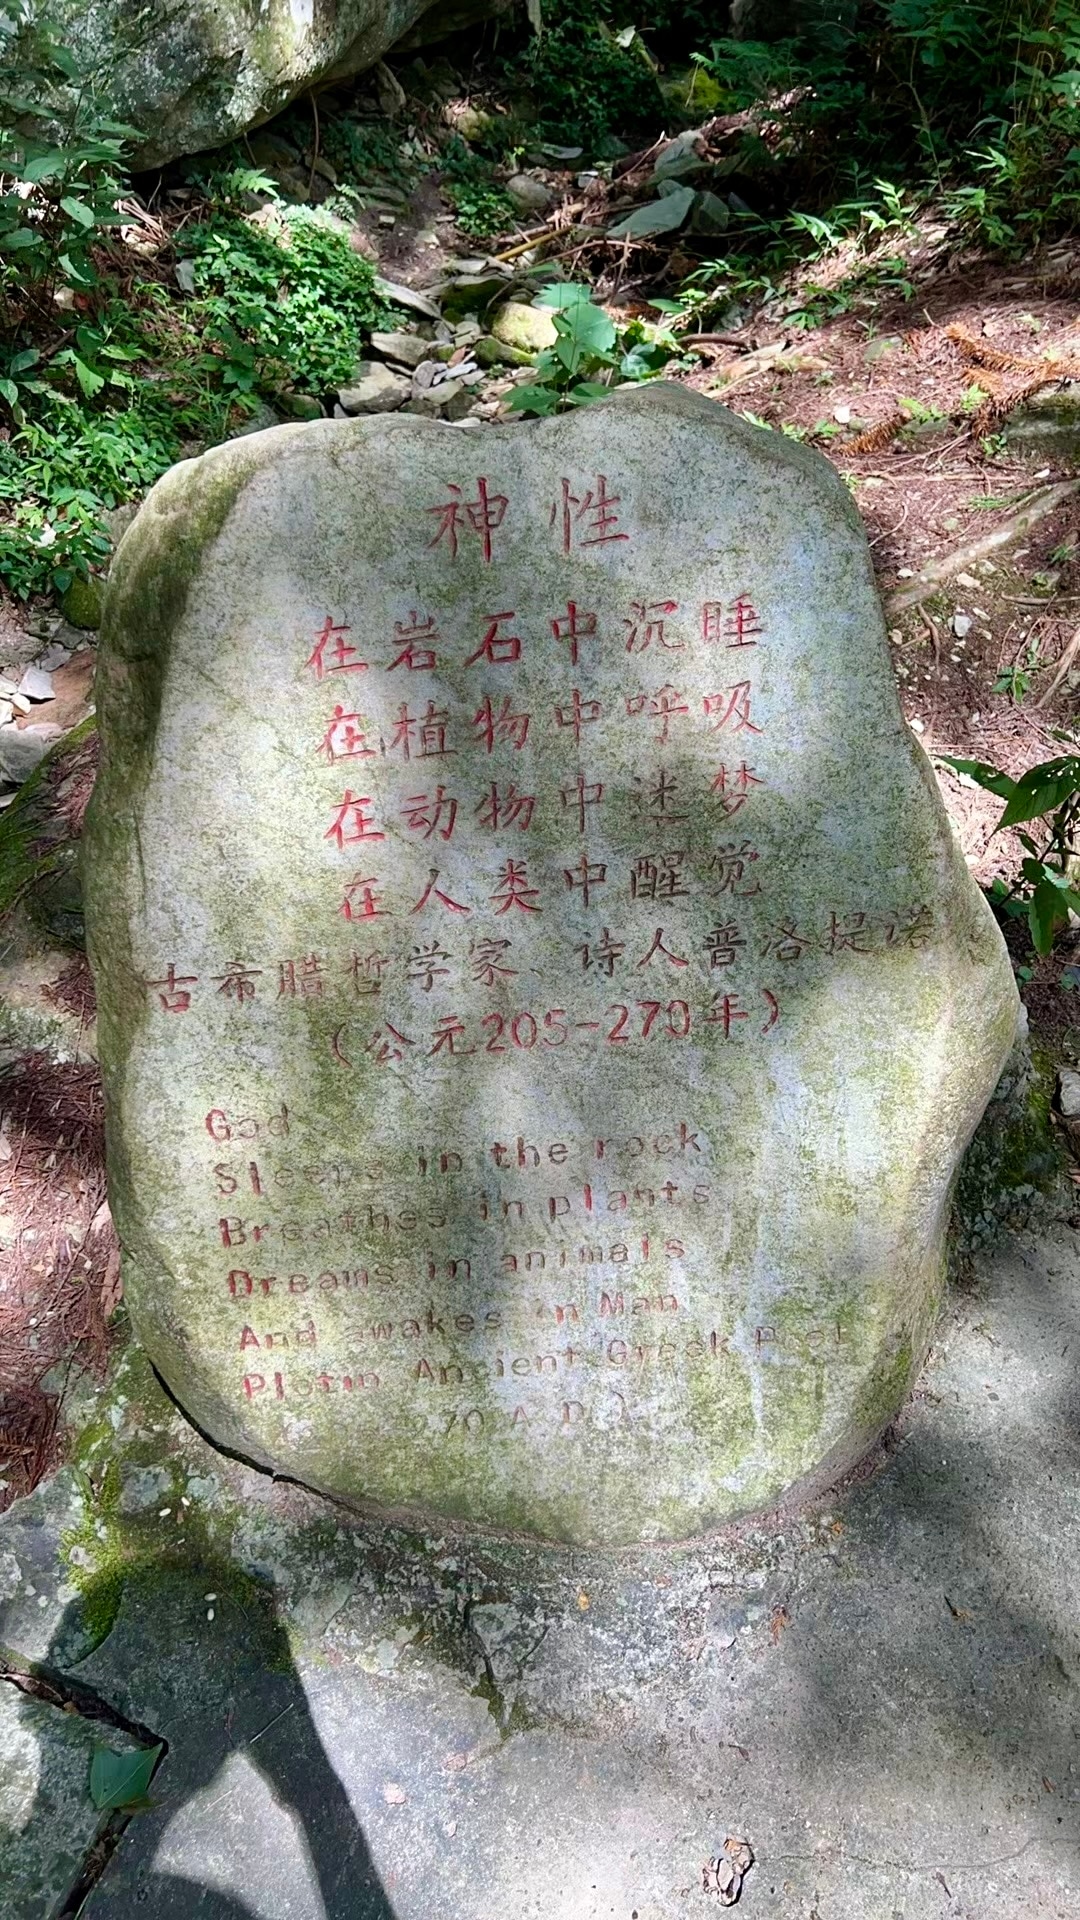 神性
在岩石中沉睡
在植物中呼吸
在动物中迷梦
在人类中醒觉
古希腊哲学家、诗人普洛提诺
（公元205-270年）
God
Sleeps in the rock
Breathes in plants
Dreams in animals
And awakes in Man
Plotin Ancient Greek Poet
270 A.D.)